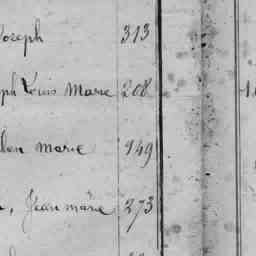 Joseph 313
ph Louis Marie 208
marie 949
Jean marie 273